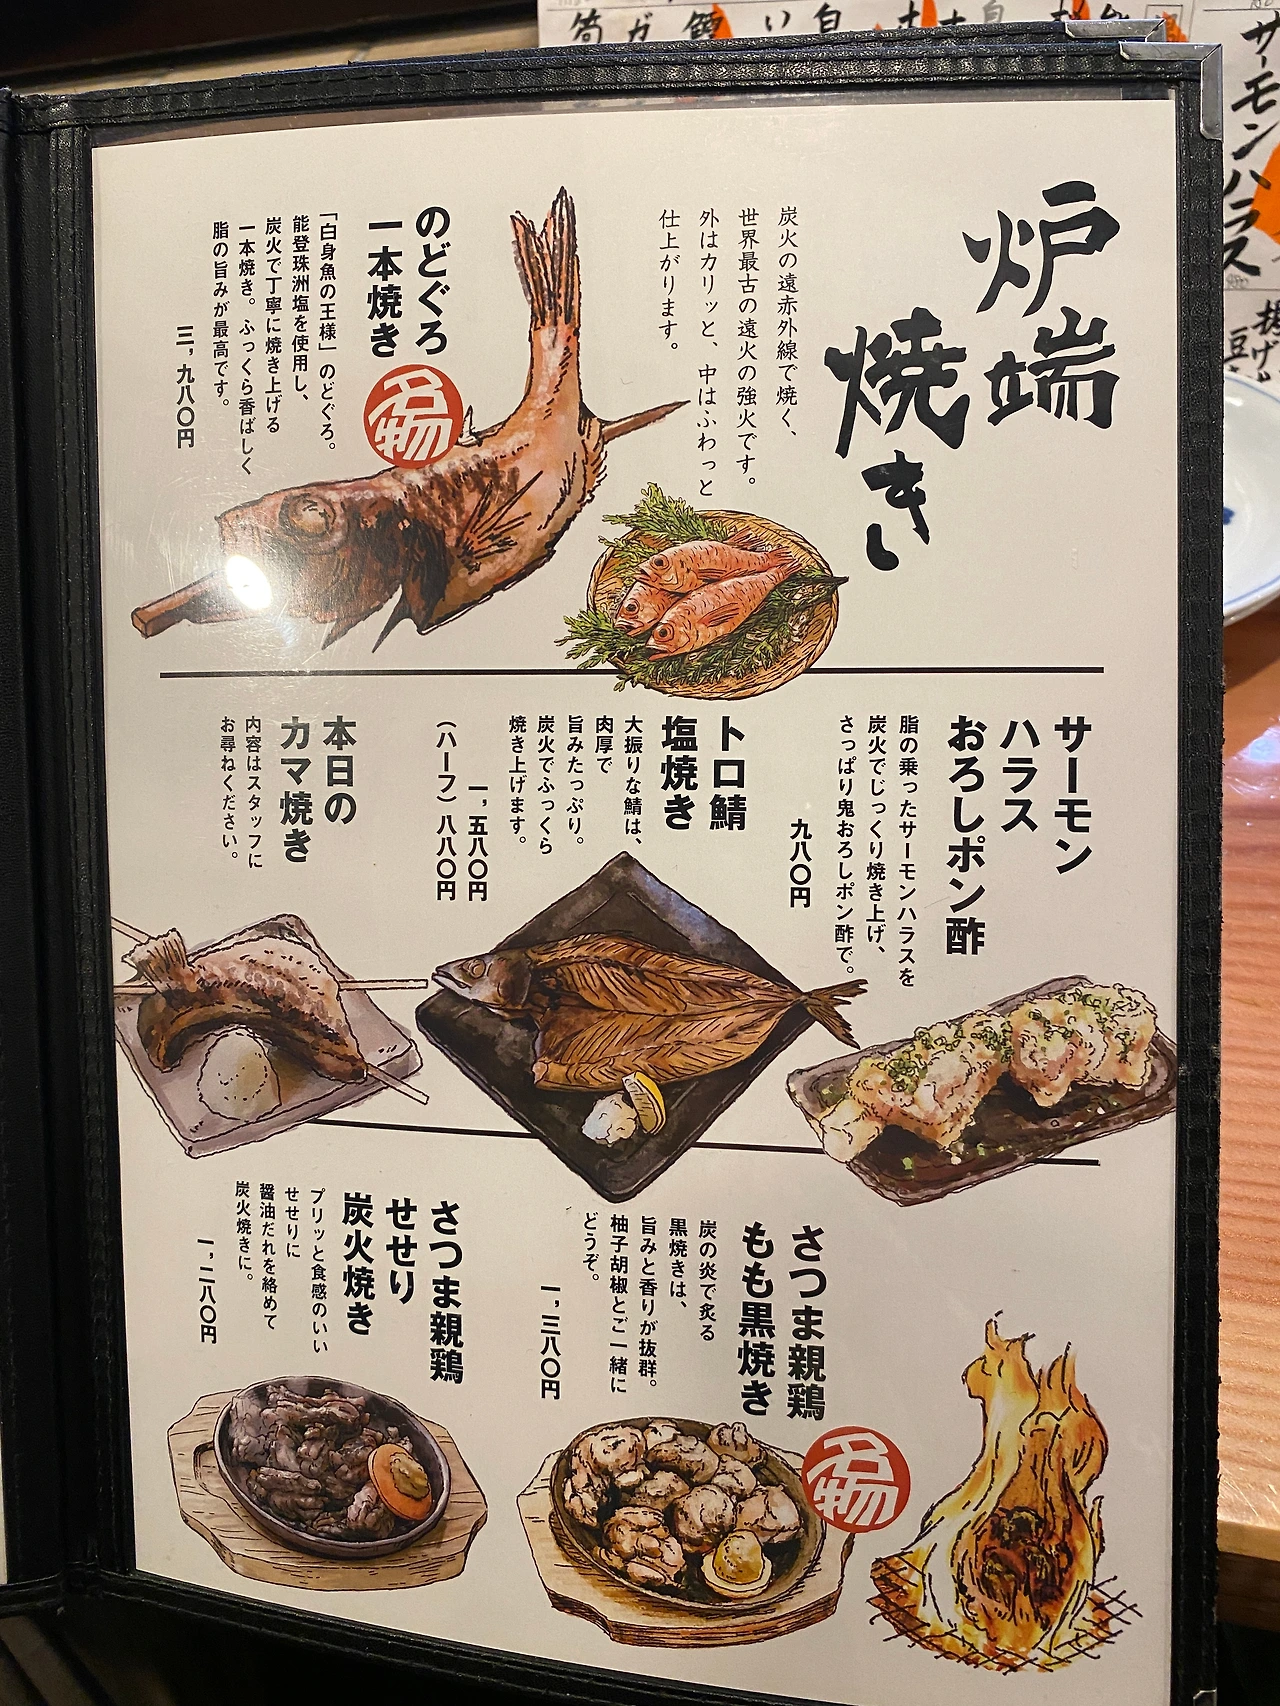 炉端
焼き
炭火の遠赤外線で焼く、
世界最古の遠火の強火です。
外はカリッと、中はふわっと
仕上がります。
のどぐろ
一本焼き
名物
「白身魚の王様」のどぐろ。
能登珠洲塩を使用し、
炭火で丁寧に焼き上げる
一本焼き。ふっくら香ばしく
脂の旨みが最高です。
三,九八〇円
サーモン
ハラス
おろしポン酢
脂の乗ったサーモンハラスを
炭火でじっくり焼き上げ、
さっぱり鬼おろしポン酢で。
九八〇円
トロ鯖
塩焼き
大振りな鯖は、
肉厚で
旨みたっぷり。
炭火でふっくら
焼き上げます。
一,五八〇円
(ハーフ)八八〇円
本日の
カマ焼き
内容はスタッフに
お尋ねください。
さつま親鶏
もも黒焼き
名物
炭の炎で炙る
黒焼きは、
旨みと香りが抜群。
柚子胡椒とご一緒に
どうぞ。
一,三八〇円
さつま親鶏
せせり
炭火焼き
プリッと食感のいい
せせりに
醤油だれを絡めて
炭火焼きに。
一,二八〇円
サーモンハラス